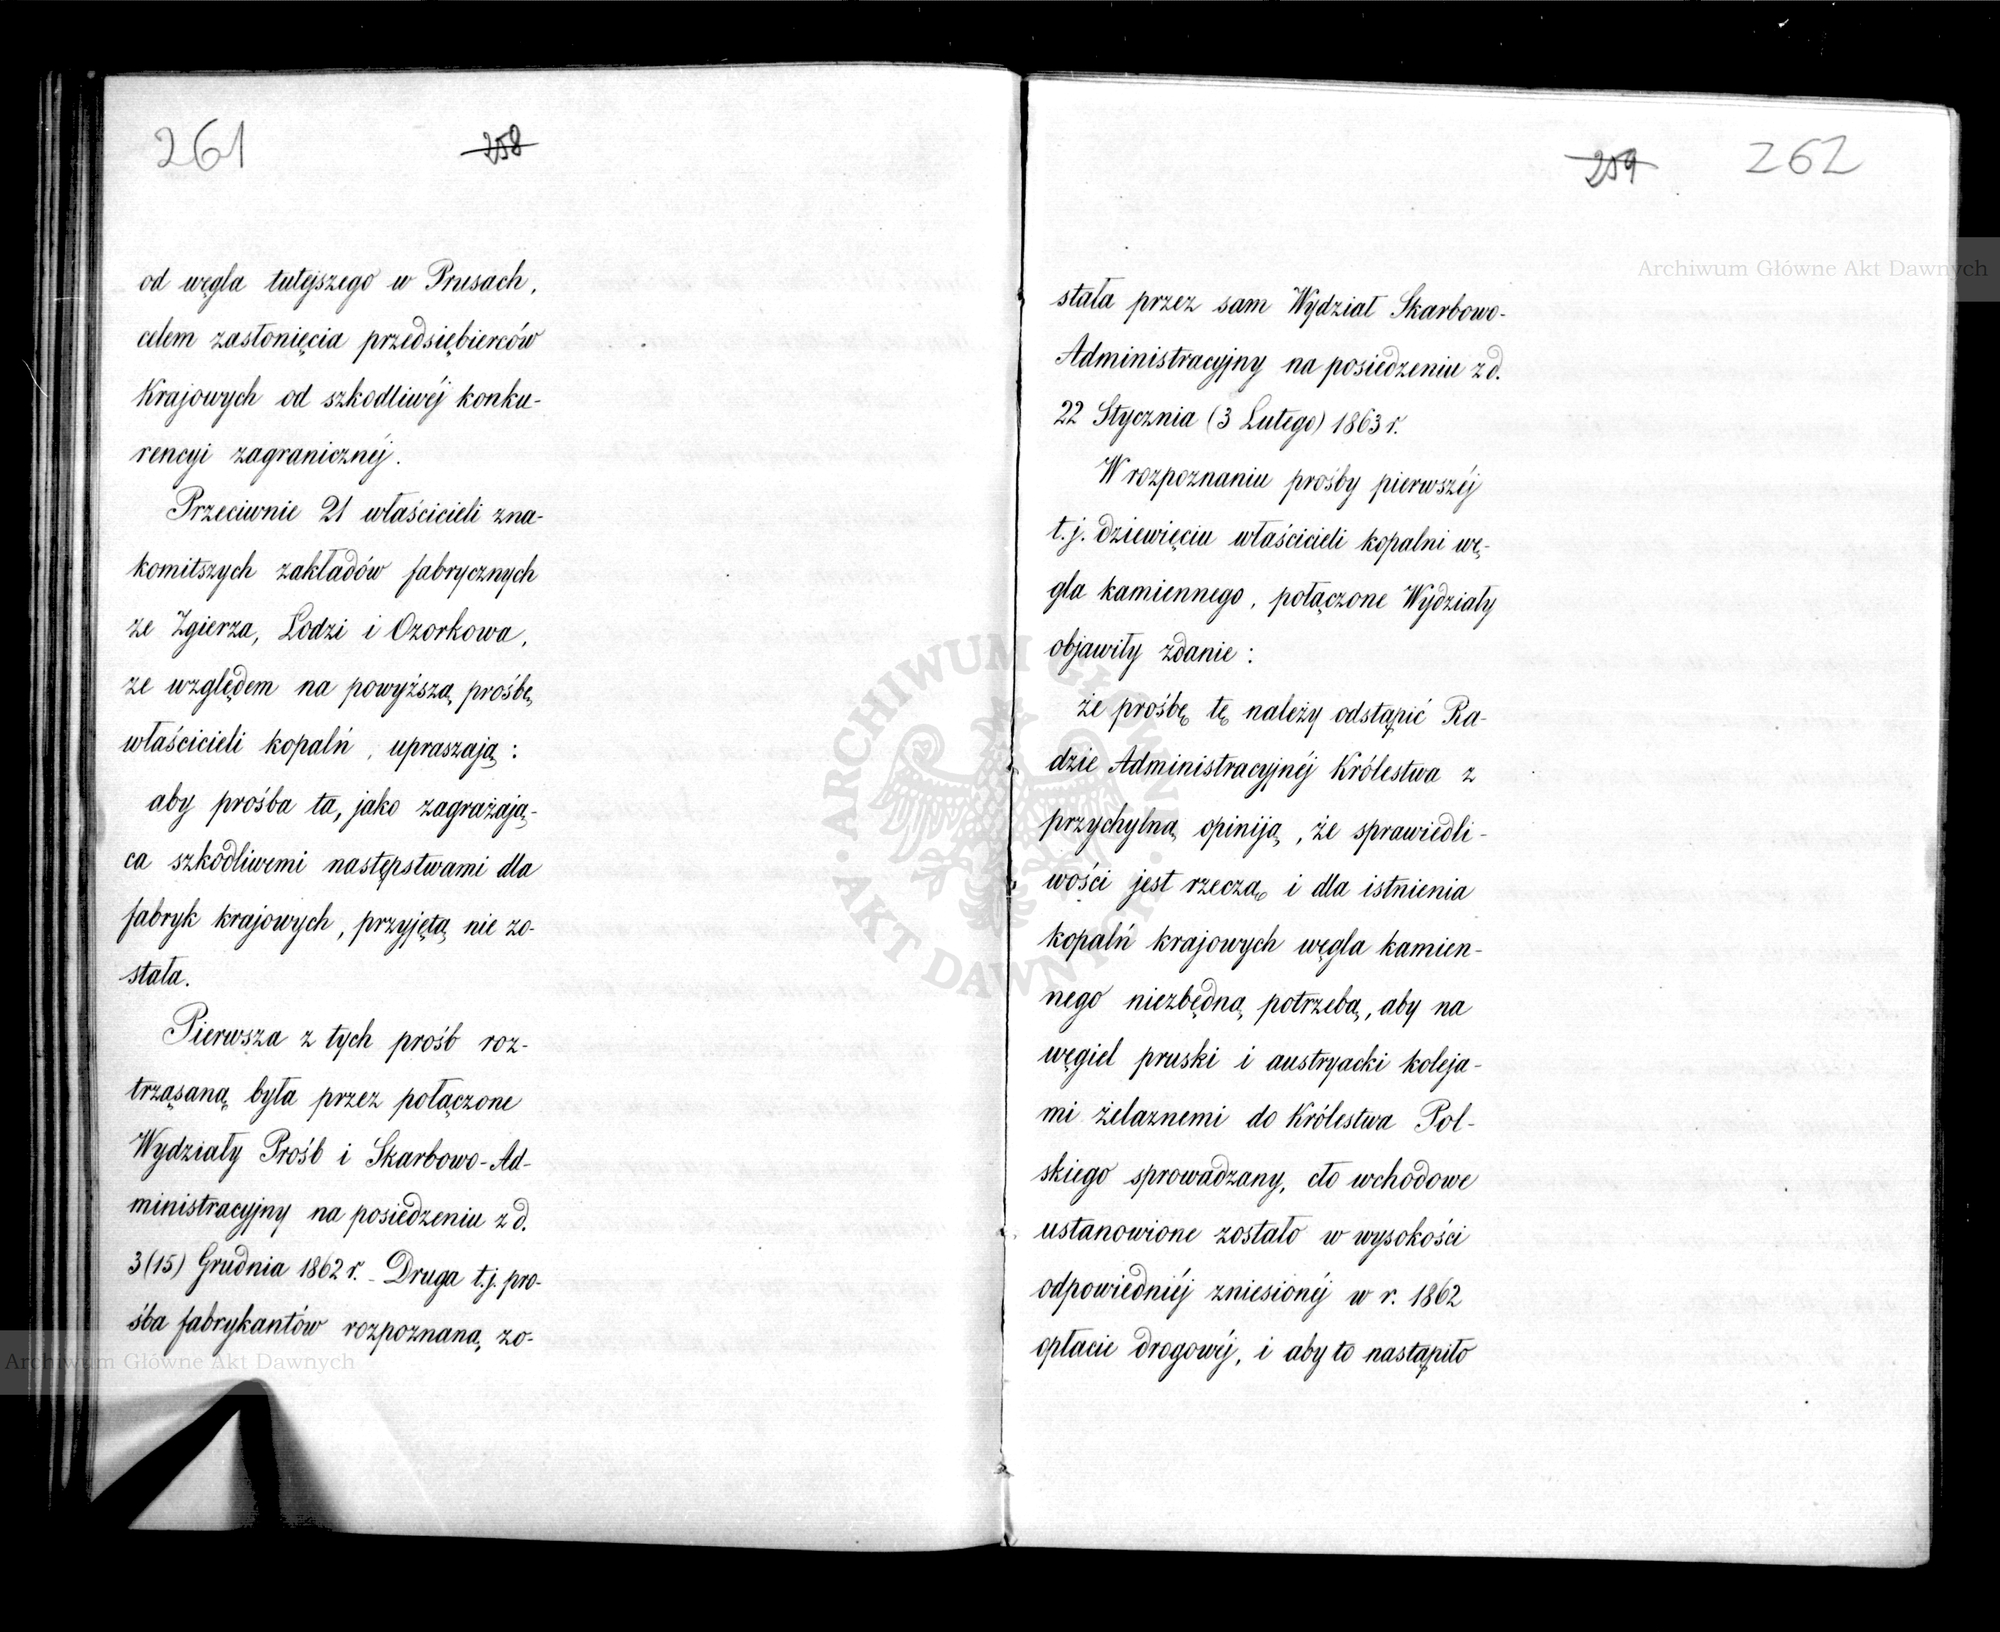 261
258
od węgla tutejszego w Prusach,
celem zasłonięcia przedsiębierców
Krajowych od szkodliwéj konku-
rencyi zagranicznéj.
Przeciwnie 21 właścicieli zna-
komitszych zakładów fabrycznych
ze Zgierza, Łodzi i Ozorkowa,
ze względem na powyższą prośbę
właścicieli kopalń, upraszają:
aby prośba ta, jako zagrażają-
ca szkodliwemi następstwami dla
fabryk krajowych, przyjętą nie zo-
stała.
Pierwsza z tych prośb roz-
trząsaną była przez połączone
Wydziały Prośb i Skarbowo-Ad-
ministracyjny na posiedzeniu z d.
3 (15) Grudnia 1862 r. - Druga t.j. pro-
śba fabrykantów rozpoznaną zo-
259
262
stała przez sam Wydział Skarbowo-
Administracyjny na posiedzeniu z d.
22 Stycznia (3 Lutego) 1863 r.
W rozpoznaniu prośby pierwszéj
t.j. dziewięciu właścicieli kopalni wę-
gla kamiennego, połączone Wydziały
objawiły zdanie:
że prośbę tę należy odstąpić Ra-
dzie Administracyjnéj Królestwa z
przychylną opiniją, że sprawiedli-
wości jest rzeczą i dla istnienia
kopalń krajowych węgla kamien-
nego niezbędną potrzebą, aby na
węgiel pruski i austryacki koleja-
mi żelaznemi do Królestwa Pol-
skiego sprowadzany, cło wchodowe
ustanowione zostało w wysokości
odpowiedniéj zniesionéj w r. 1862
opłacie drogowéj, i aby to nastąpiło
Archiwum Główne Akt Dawnych
Archiwum Główne Akt Dawnych
ARCHIWUM GŁÓWNE AKT DAWNYCH